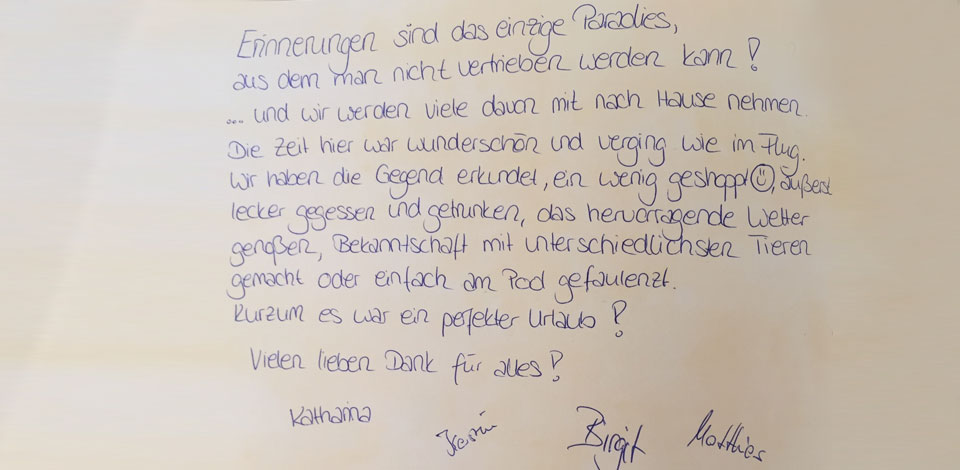 Erinnerungen sind das einzige Paradies,
aus dem man nicht vertrieben werden kann!
... und wir werden viele davon mit nach Hause nehmen.
Die Zeit hier war wunderschön und verging wie im Flug.
Wir haben die Gegend erkundet, ein wenig geshoppt, äußerst
lecker gegessen und getrunken, das hervorragende Wetter
genoßen, Bekanntschaft mit unterschiedlichsten Tieren
gemacht oder einfach am Pool gefaulenzt.
Kurzum es war ein perfekter Urlaub!
Vielen lieben Dank für alles!
Katharina
Birgit Matthias